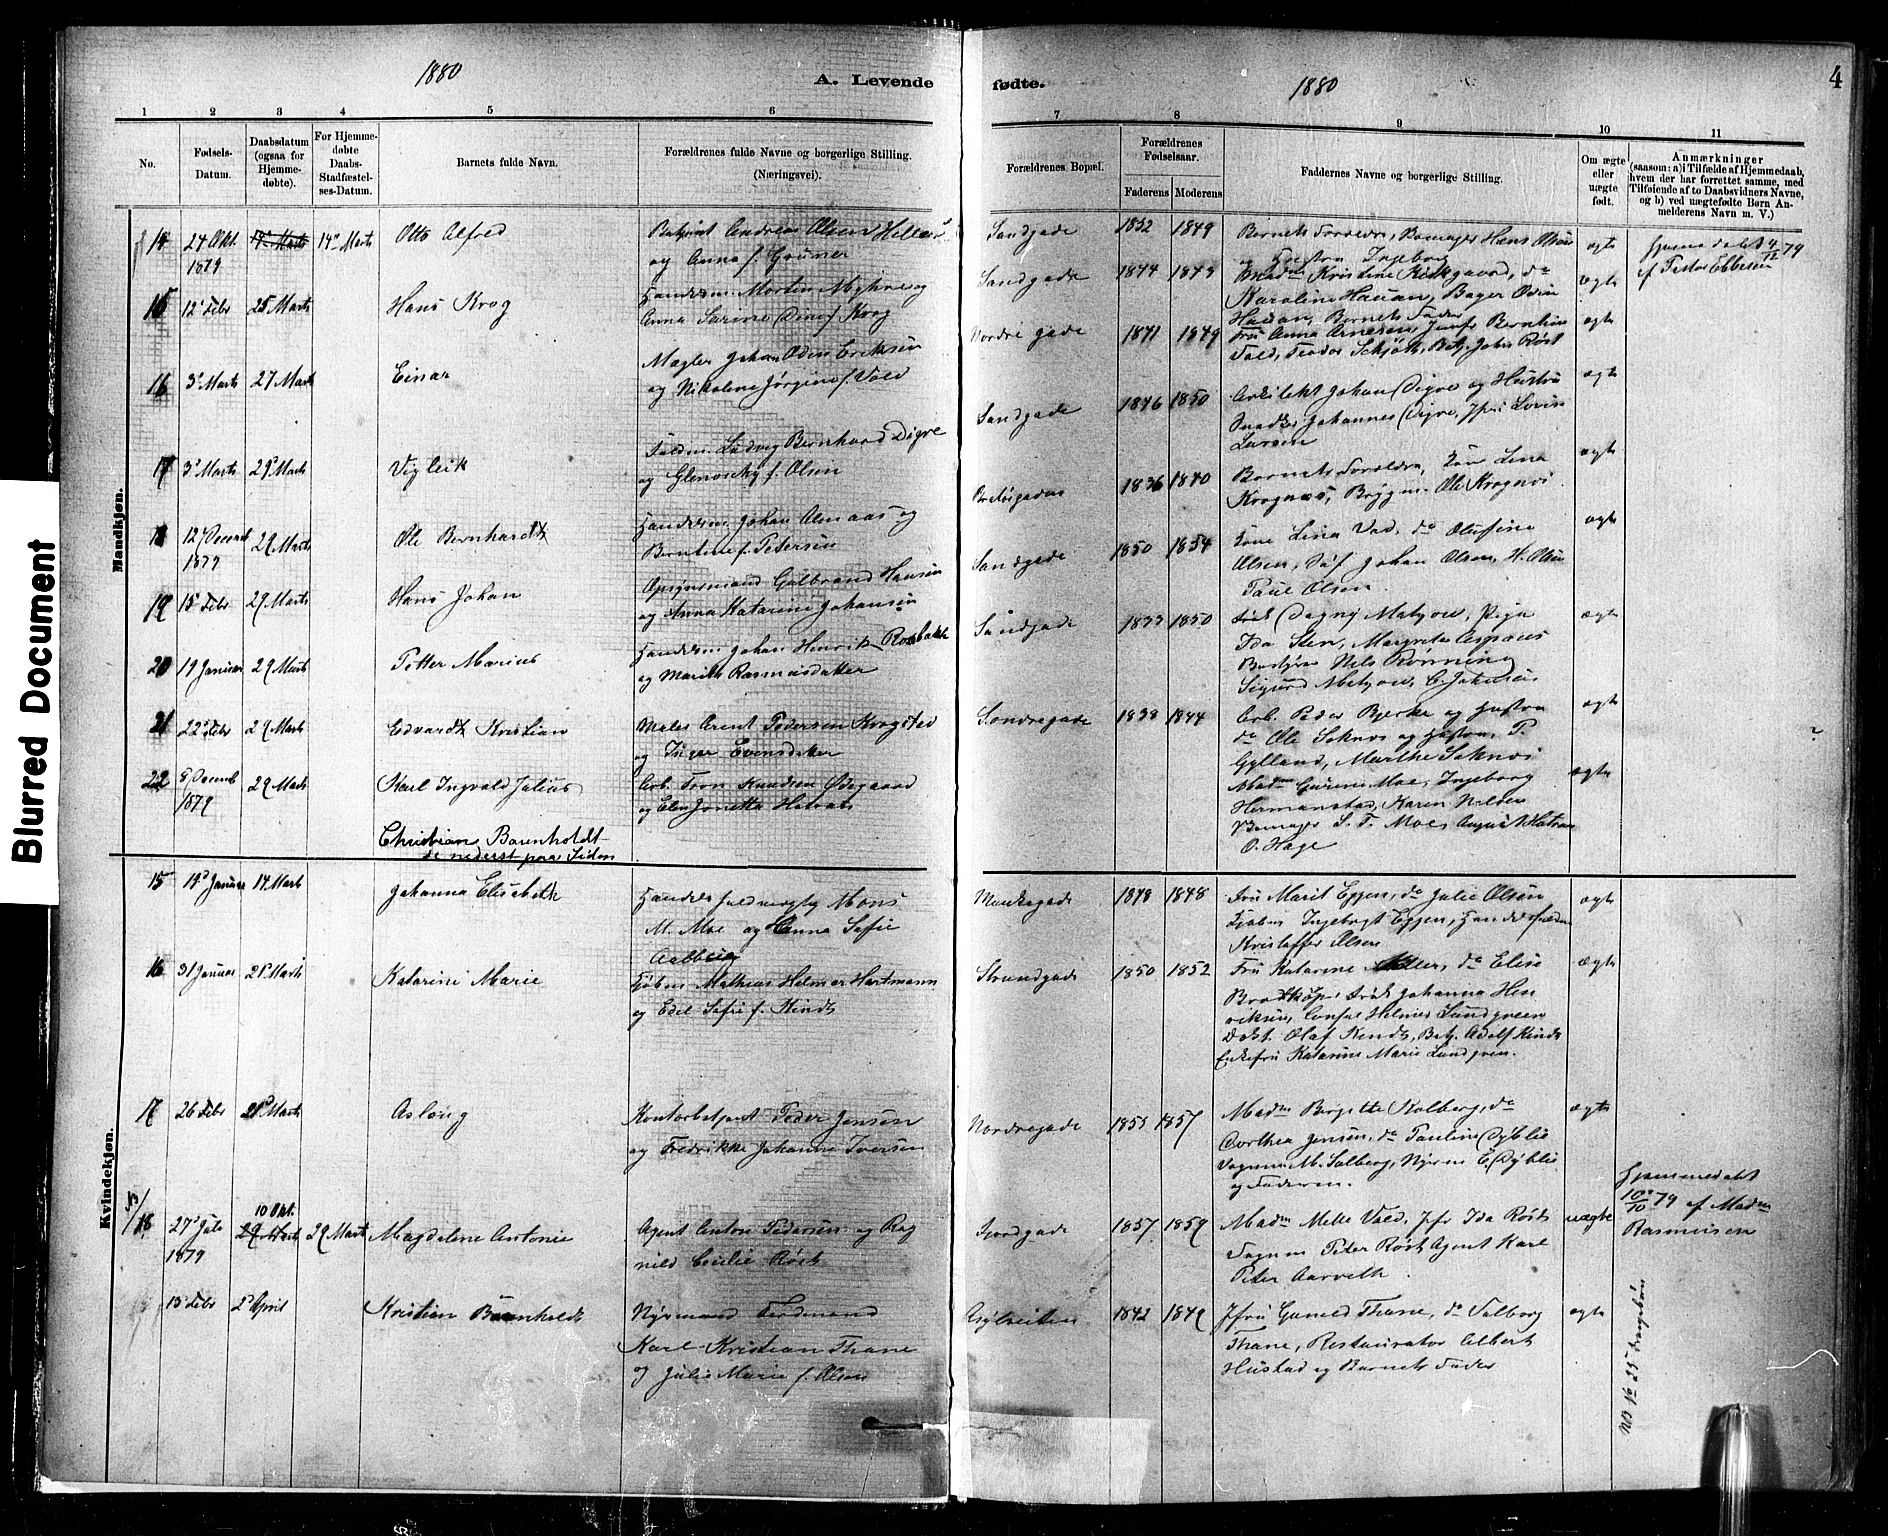 Blurred Document
1880
A. Levende
fødte.
1880
4
1 2 3 4 5 6 7 8 9 10 11
No.
Fødsels-
Datum.
Daabsdatum
(ogsaa for
Hjemme-
døbte).
For Hjemme-
døbte
Daabs-
Stadfæstel-
ses-Datum.
Barnets fulde Navn.
Forældrenes fulde Navne og borgerlige Stilling.
(Næringsvei).
Forældrenes Bopæl.
Forældrenes
Fødselsaar.
Faderens Moderens
Faddernes Navne og borgerlige Stilling.
Om ægte
eller
uægte
født.
Anmærkninger
(saasom: a) i Tilfælde af Hjemmedaab,
hvem der har forrettet samme, med
Tilføiende af to Daabsvidners Navne,
og b) ved uægtefødte Børn An-
melderens Navn m. V.)
Mandkjøn.
14 24 Okt. 14 Marts 14 Marts Otto Alfred
1879
Andreas Olsen
og Anna f. Grüner
Sandgade 1852 1849
Barnets Forældre, Hans Olsen
og Hustru Ingeborg
ægte
Hjemmedøbt 4/12 79
af Pastor Ebbesen
15 12 Febr 25 Marts Hans Krog
Handelsm. Morten Myhre og
Anna Sarine Dine f. Krog
Sandgade 1844 1843
Madm Kristine Kirkgaard, do
Karoline Hauan, Bager Odin
Hauan, Barnets Fader
ægte
16 3 Marts 27 Marts Einar
Mægler Johan Oden Eriksen
og Nikoline Jørgine f. Vold
Nordre gade 1841 1849
Fru Anna Arnesen, Jomfr Bernhin
Vold, Teodor Schjøth, Betj. John Røst
ægte
17 3 Marts 29 Marts Vigleik
Fuldm. Ludvig Bernhard Digre
og f. Olsen
Sandgade 1846 1850
Arkitekt Johan Digre og Hustru
Snedker Johannes Digre, Jfru Lovise
Larsen
ægte
18 12 Decemb 29 Marts Ole Bernhardt
1879
Handelsm. Johan Almaas og
Berntine f. Petersen
1836 1840
Barnets Forældre, Kone Lina
Krognes, Brygm. Ole Krognes
ægte
19 15 Febr 29 Marts Hans Johan
Opsynsmand Gulbrand Hansen
og Anna Katarine Johansen
Sandgade 1850 1854
Kone Lina Vad, do Olufine
Olsen, Johan Olsen, H. Olsen
Paul Olsen
ægte
20 19 Januar 29 Marts Petter Marius
Handelsm. Johan Henrik Rosbakk
og Marith Rasmusdatter
Sandgade 1833 1850
Frøk Dagny Matzow, Pige
Ida Sten, Margrete Aspaas
Nils Rønning
Sigurd Matzow, C. Johansen
ægte
21 22 Febr 29 Marts Edvardt Kristian
Maler Arnt Pedersen Krogstad
og Inger Evensdatter
Søndregade 1838 1844
Arb. Peder Bjerke og Hustru
do Ole Soknes og Hustru, P.
Gylland, Marthe Soknes
ægte
22 8 Decemb 29 Marts Karl Ingvald Julius
1879
Arb. Tron Knudsen Ødegaard
og Elen Jonetta
Madm Gurine Moe, Ingeborg
Hermanstad, Karen Nilsen
S. T. Moe, August
O. Hage
ægte
Christian Barnholdt
se nederst paa Siden
Kvindekjøn.
15 14 Januar 14 Marts Johanna Elisabeth
Handelsfuldmægtig Mons
M. Moe og Hanna Sofie
Aalberg
Munkegade 1848 1848
Fru Marit Eggen, do Julie Olsen
Kjøbm Ingebrigt Eggen, Handelsfuldm
Kristoffer Olsen
ægte
16 31 Januar 21 Marts Katarine Marie
Kjøbm Mathias Helmer Hartmann
og Edel Sofie f. Kindt
Strandgade 1850 1852
Fru Katarine Møller, do Elise
Brodtkorb, Frøk Johanna Hen
riksen, Consul Helmer Lundgreen
Dokt. Olaf Kindt, Betj. Adolf Kindt
Enkefru Katarine Marie Lundgren.
ægte
17 26 Febr 21 Marts Aslaug
Kontorbetjent Peder Jensen
og Fredrikke Johanne Iversen
Nordregade 1855 1857
Madm Birgitte Kolberg, do
Dorthea Jensen, do Pauline Dyblie
M. Solberg, E. Dyblie
og Faderen.
ægte
18 27 Juli 10 Okt. 29 Marts 29 Marts Magdalene Antonie
1879
Agent Anton Pedersen og Rag
nild Cecilie Røst
Fjordgade 1857 1859
Madm Mette Vold, Jfr Ida Røst
Peter Røst Agent Karl
Peter Aarveth.
uægte
Hjemmedøbt
10/10 79 af Madm
Rasmussen
15 Febr 2 April Kristian Barnholdt
Ferdinand
Karl Kristian Thane
og Julie Marie f. Olsen
1842 1849
Jfru Gameld Thane, do Valborg
Thane, Restauratør Albert
Hustad og Barnets Fader
ægte